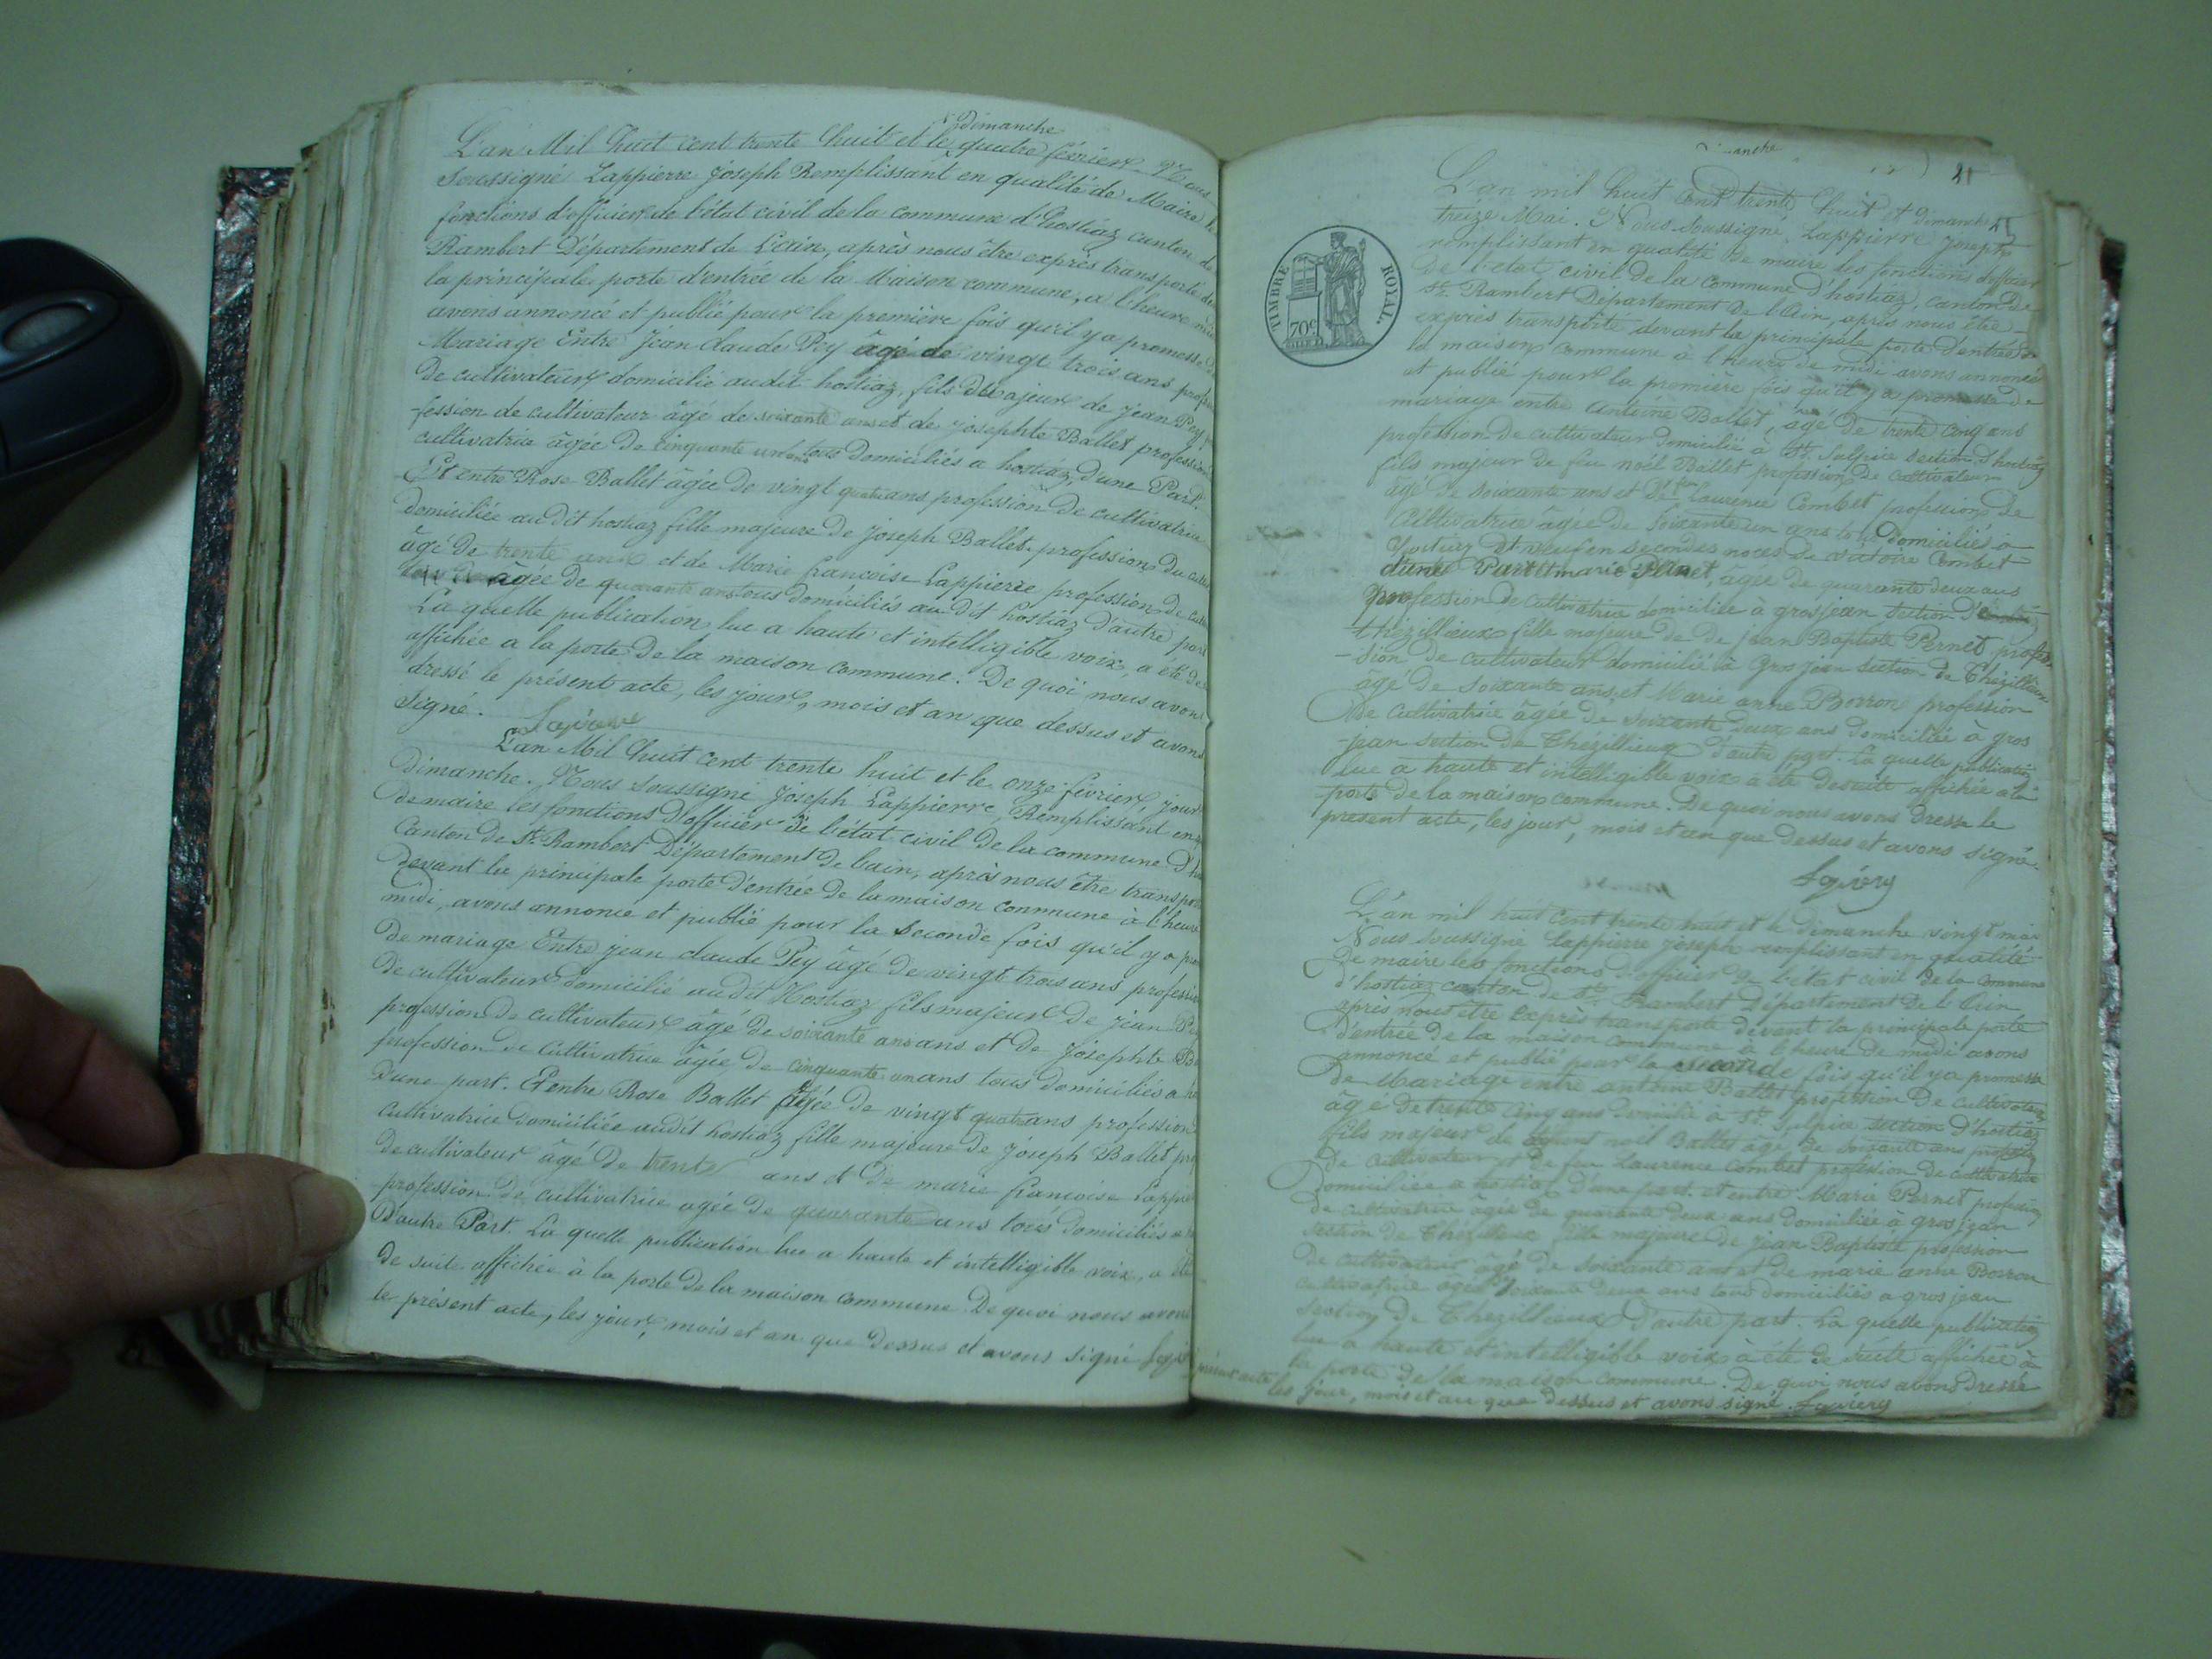 dimanche
L'an Mil huit cent trente huit et le quatre février Nous
Soussigné Lappierre Joseph Remplissant en qualité de Maire
fonctions d'officier de l'état civil de la commune d'hostiaz canton de
Rambert Département de L'ain, après nous être exprès transporté
la principale porte d'entrée de la Maison commune, a l'heure
avons annoncé et publié pour la première fois qu'il y a promesse
Mariage Entre Jean Claude Pey âgé de vingt trois ans
de cultivateur domicilié audit hostiaz, fils Majeur de jean Pey
fession de cultivateur âgé de soixante ans et de josephte Ballet profession
cultivatrice âgée de cinquante un ans tous Domiciliés a hostiaz, d'une Part.
Et entre Rose Ballet âgée de vingt quatre ans profession de cultivatrice
domiciliée audit hostiaz fille majeure de Joseph Ballet profession
âgé de trente ans et de Marie francoise Lappierre profession de
âgée de quarante ans tous domiciliés au dit hostiaz d'autre part
La quelle publication, lue a haute et intelligible voix, a été
affichée a la porte de la maison commune. De quoi nous avons
dressé le présent acte, les jour, mois et an que dessus et avons
signé.
L'an Mil huit cent trente huit et le onze février, jour
dimanche. Nous Soussigné Joseph Lappierre, Remplissant en
de maire les fonctions d'officier de l'état civil de la commune
Canton de St. Rambert Département de Lain, après nous être
Devant la principale porte d'entrée de la maison commune à l'heure
midi, avons annoncé et publié pour la Seconde fois qu'il y a
de mariage Entre jean claude Pey âgé de vingt trois ans profession
de cultivateur domicilié audit Hostiaz fils majeur de jean
profession de cultivateur âgé de soixante ans ans et de Josephte
profession de cultivatrice âgée de cinquante un ans tous domiciliés a
Dune part. Et entre Rose Ballet âgée de vingt quatre ans profession
Cultivatrice Domiciliée audit hostiaz fille majeure de Joseph Ballet
de cultivateur âgé de trente ans et De marie francoise
profession de cultivatrice agée de quarante ans tous domiciliés
D'autre Part. La quelle publication lue a haute et intelligible voix, a été
de suite affichée à la porte de la maison commune De quoi nous avons
le présent acte, les jour, mois et an que Dessus et avons signé
21
L'an mil huit cent trente huit et Dimanche
treize Mai. Nous Soussigné, Lappierre Joseph
remplissant en qualité de maire les fonctions d'officier
de l'état civil de la commune d'hostiaz, canton de
St. Rambert Département de l'Ain, après nous être
exprès transporté devant la principale porte d'entrée de
la maison commune à l'heure de midi avons annoncé
et publié pour la première fois qu'il y a promesse de
mariage entre Antoine Ballet, âgé De trente cinq ans
profession de cultivateur domicilié à St. Sulpice section d'hostiaz
fils majeur de feu noël Ballet profession de cultivateur
âgé De soixante ans et De feu Laurence Combet profession de
Cultivatrice âgée de soixante un ans domiciliés à
hostiaz et veuf en secondes noces de victoire Combet
d'une Part Marie Pernet, âgée de quarante deux ans
profession de cultivatrice domiciliée à grosjean section
thézillieux fille majeure de de jean Baptiste Pernet profes-
-sion de cultivateur domicilié à Gros jean section de Thézillieux
âgé De soixante ans, et Marie anne Borron profession
de cultivatrice âgée De soixante Deux ans domiciliée à gros
jean section de Thézillieux d'autre part. La quelle publication
lue a haute et intelligible voix a été De suite affichée a la
porte de la maison commune. De quoi nous avons Dressé le
present acte, les jour, mois et an que Dessus et avons signé.
TIMBRE ROYAL.
70c
L'an mil huit cent trente huit et le dimanche vingt mai
Nous Soussigné Lappierre Joseph remplissant en qualité
De maire les fonctions d'officier De l'état civil de la commune
d'hostiaz canton de St. Rambert Département De l'Ain
après nous être exprès transporté devant la principale porte
D'entrée de la maison commune à l'heure de midi avons
annoncé et publié pour la seconde fois qu'il y a promesse
De Mariage entre antoine Ballet profession De cultivateur
âgé De trente cinq ans domicilié à St. Sulpice section d'hostiaz
fils majeur de noël Ballet âgé de soixante ans profession
De cultivateur et de feu Laurence Combet profession De cultivatrice
Domiciliée a hostiaz D'une part. et entre Marie Pernet profession
De cultivatrice âgée de quarante deux ans domiciliée à gros jean
section de Thézillieux fille majeure de jean Baptiste profession
de cultivateur âgé de soixante ans et de marie anne Borron
cultivatrice âgée soixante Deux ans tous domiciliés a gros jean
section De Thezillieux D'autre part. La quelle publication
lue a haute et intelligible voix a été de suite affichée à
la porte de la maison commune. De quoi nous avons Dressé
présent acte les jour, mois et an que dessus et avons signé.